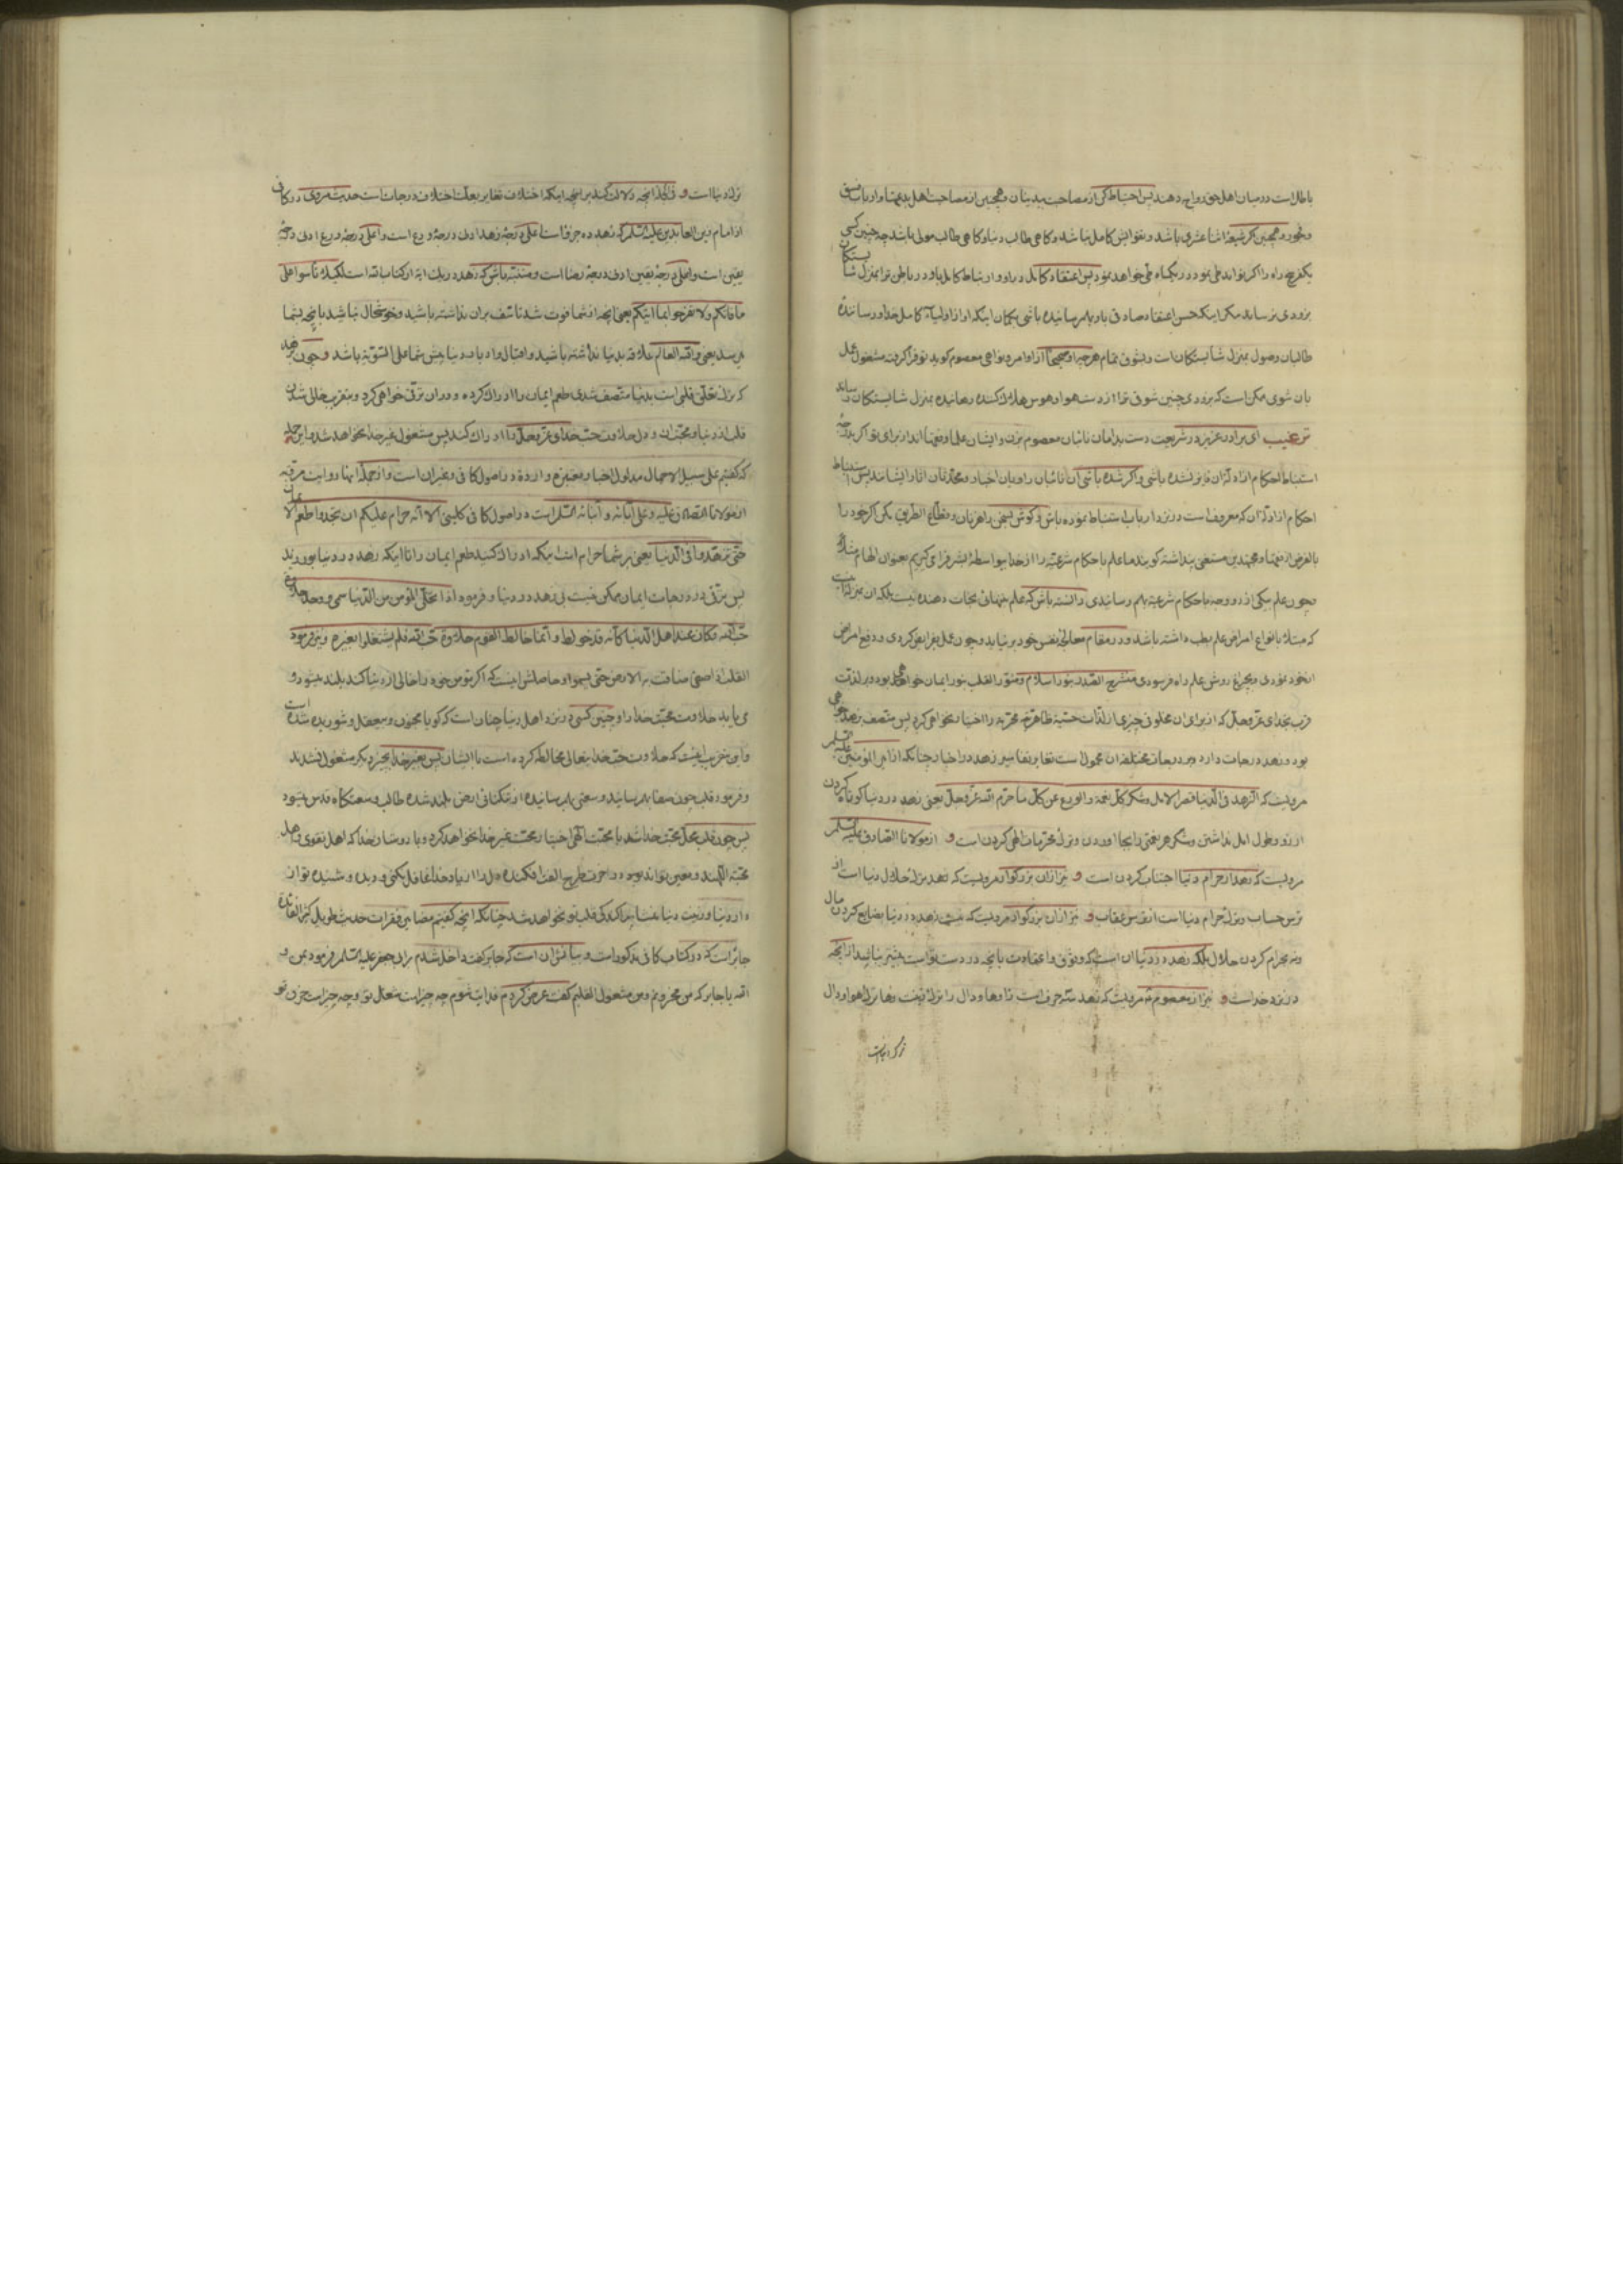 باطل است در میان اهل حق رواج دهند پس احتیاط کن از مصاحبت بیدینان و همچنین از مصاحبت اهل بدعتها و ارباب فسق
و فجور و همچنین کر شیعهٔ اثنا عشری باشد و بغور ایش کامل نباشد و کاهی طالب دنیا و کاهی طالب مولی باشد چه چنین کسی
یکفرچه راه را اکر تواند طی نمود در یکماه طی خواهد نمود پس اعتقاد کامل در او و ارتباط کامل باو در باطن ترا بمنزل شایستکان
بزودی نرساند مکر اینکه حسن اعتقاد صادق باو بهم رسانیده باشی بکمان اینکه او از اولیاء کامل خدا و رسانندهٔ
طالبان وصول بمنزل شایستکان است و بشوق تمام هرچه او صحیحاً از اوامر و نواهی معصوم کوید تو فرا کرفته مشغول عمل
بان شوی ممکن است که بزودی چنین شوق ترا از دست هوا و هوس هلاک کننده رهانیده بمنزل شایستکان رساند
ترغیب ای برادر عزیز در شریعت دست بدامان نائبان معصوم بزن و ایشان علما و فقهااند از برای تو اکر بدرجهٔ
استنباط احکام از ادلهٔ ان فایز نشده باشی و اکر شده باشی ان نائبان راویان اخبار و محدثان اثار ایشانند پس استنباط
احکام از ادلهٔ ان که معروف است در نزد ارباب استنباط نموده باش و کوش بسخن راهزنان و قطاع الطریق مکن اکر خود را
بالفرض از فقها و مجتهدین مستغنی پنداشته کویند ما علم باحکام شرعیه را از خدا بیواسطهٔ بشر فرا می کیریم بعنوان الهام مثلاً
و چون علم بیکی از دو وجه باحکام شرعیه بهم رسانیدی دانسته باش که علم تنهائی نجات دهنده نیست بلکه ان بمنزله است
که مبتلا بانواع امراض علم بطب داشته باشد و در مقام معالجهٔ نفس خود بر نیاید و چون عمل بفرایض کردی و دفع امراض
از خود نمودی و بچراغ روش علم راه فرسودی منشرح الصدر بنور اسلام و منور القلب بنور ایمان خواهی بود و بر لذت
قرب بخدای عز و جل که از برای ان مخلوق چیزی از لذات حسیهٔ ظاهریهٔ محرمه را اختیار نخواهی کرد پس متصف بزهد خواهی
بود و زهد درجات دارد و بر درجات مختلفه ان محمول است تغایر تفاسیر زهد در اخبار چنانکه از امیر المؤمنین علیه السلم
مرویست که الزهد فی الدنیا قصر الامل و شکر کل نعمة و الورع عن کل ما حرم الله عز و جل یعنی زهد در دنیا کوتاه کردن
ارزو و طول امل نداشتن و شکر هر نعمتی را بجا اوردن و ترک محرمات الهی کردن است و از مولانا الصادق علیه السلم
مرویست که زهد از حرام دنیا اجتناب کردن است و نیز از ان بزرکوار مرویست که زهد ترک حلال دنیا است از
ترس حساب و ترک حرام دنیا است از ترس عقاب و نیز از ان بزرکوار مرویست که نیست زهد در دنیا بضایع کردن مال
و نه بحرام کردن حلال بلکه زهد در دنیا ان است که وثوق و اعتمادت بانچه در دست تو است بیشتر نباشد از انچه
در نزد خداست و نیز از معصوم مرویست که زهد سه حرف است زا و ها و دال زا ترک زینت و ها ترک هوا و دال
ترک دنیا است
ترک دنیا است و کذا انچه دلالت کند بر انچه اینکه اختلاف تفاسیر بعلت اختلاف درجات است حدیث مروی در کافی
از امام زین العابدین علیه السلم که زهد ده جزء است اعلی درجهٔ زهد ادنی درجهٔ ورع است و اعلی درجهٔ ورع ادنی درجهٔ
یقین است و اعلی درجهٔ یقین ادنی درجهٔ رضا است و متنبه باش که زهد در یک ایه از کتاب الله است لکیلا تأسوا علی
ما فاتکم و لا تفرحوا بما اتیکم یعنی انچه از شما فوت شد تاسف بران نداشته باشید و خوشحال نباشید بانچه بشما
میرسد یعنی و الله العالم علاقه بدنیا نداشته باشید و اقبال و ادبار دنیا پیش شما علی السویه باشد و چون بزهد
که ترک تعلق قلبی است بدنیا متصف شدی طعم ایمان را ادراک کرده و در ان ترقی خواهی کرد و بتقریب خالی شدن
قلب از دنیا و محبت ان و دل حلاوت حب خدای عز و جل را ادراک کند پس مشغول غیر خدا نخواهد شد و این جمله
که کفتیم علی سبیل الاجمال مدلول اخبار معتبره وارده در اصول کافی و غیر ان است و از جملهٔ انها روایت مرویه
از مولانا الصادق علیه و علی آبائه و ابنائه السلم است در اصول کافی کلینی الا انه حرام علیکم ان تجدوا طعم الایمان
حتی تزهدوا فی الدنیا یعنی بر شما حرام است اینکه ادراک کنید طعم ایمان را تا اینکه زهد در دنیا بورزید
پس ترقی در درجات ایمان ممکن نیست بی زهد در دنیا و فرموده اذا تخلی المؤمن من الدنیا سمی و وجد حلاوة
حب الله و کان عند اهل الدنیا کأنه قد خولط و انما خالط القوم حلاوة حب الله فلم یشتغلوا بغیره و نیز فرمود
القلب اذا صفی ضاقت به الارض حتی یسموا و حاصلش اینست که اکر مؤمن خود را خالی از دنیا کند بلند میشود و
می یابد حلاوت محبت خدا را و چنین کسی در نزد اهل دنیا چنان است که کویا مجنون و بیعقل و شوریده شده است
و این مخرب اینست که حلاوت حب خدایتعالی مخالطه کرده است با ایشان پس بغیر خدا بچیز دیکر مشغول نشدند
و فرمود قلب چون صفا بهم رسانید وسعتی بهم رسانیده از تنکنای ارض بلند شده طالب وسعتکاه قدس میشود
پس چون قلب محل محبت خدا شد با محبت الهی اختیار محبت غیر خدا نخواهد کرد و با دوستان خدا که اهل تقوی و اهل
محبة اللهند و معین تواند بوده در اخرت طرح الفت افکنده دل را از یاد خدا غافل نکنی و دیده و شنیده تو از
دار دنیا و زینت دنیا غشا پراکندکی قلب تو نخواهد شد چنانکه انچه کفتیم مضامین فقرات حدیث طویل کثیر الفائدهٔ
جابر است که در کتاب کافی مذکور است و بیانش ان است که جابر کفت داخل شدم بر ابی جعفر علیه السلم فرمود بمن و
الله یا جابر که من محزونم و من مشغول القلبم کفت عرض کردم فدایت شوم چه چیز است شغل تو و چه چیز است حزن تو